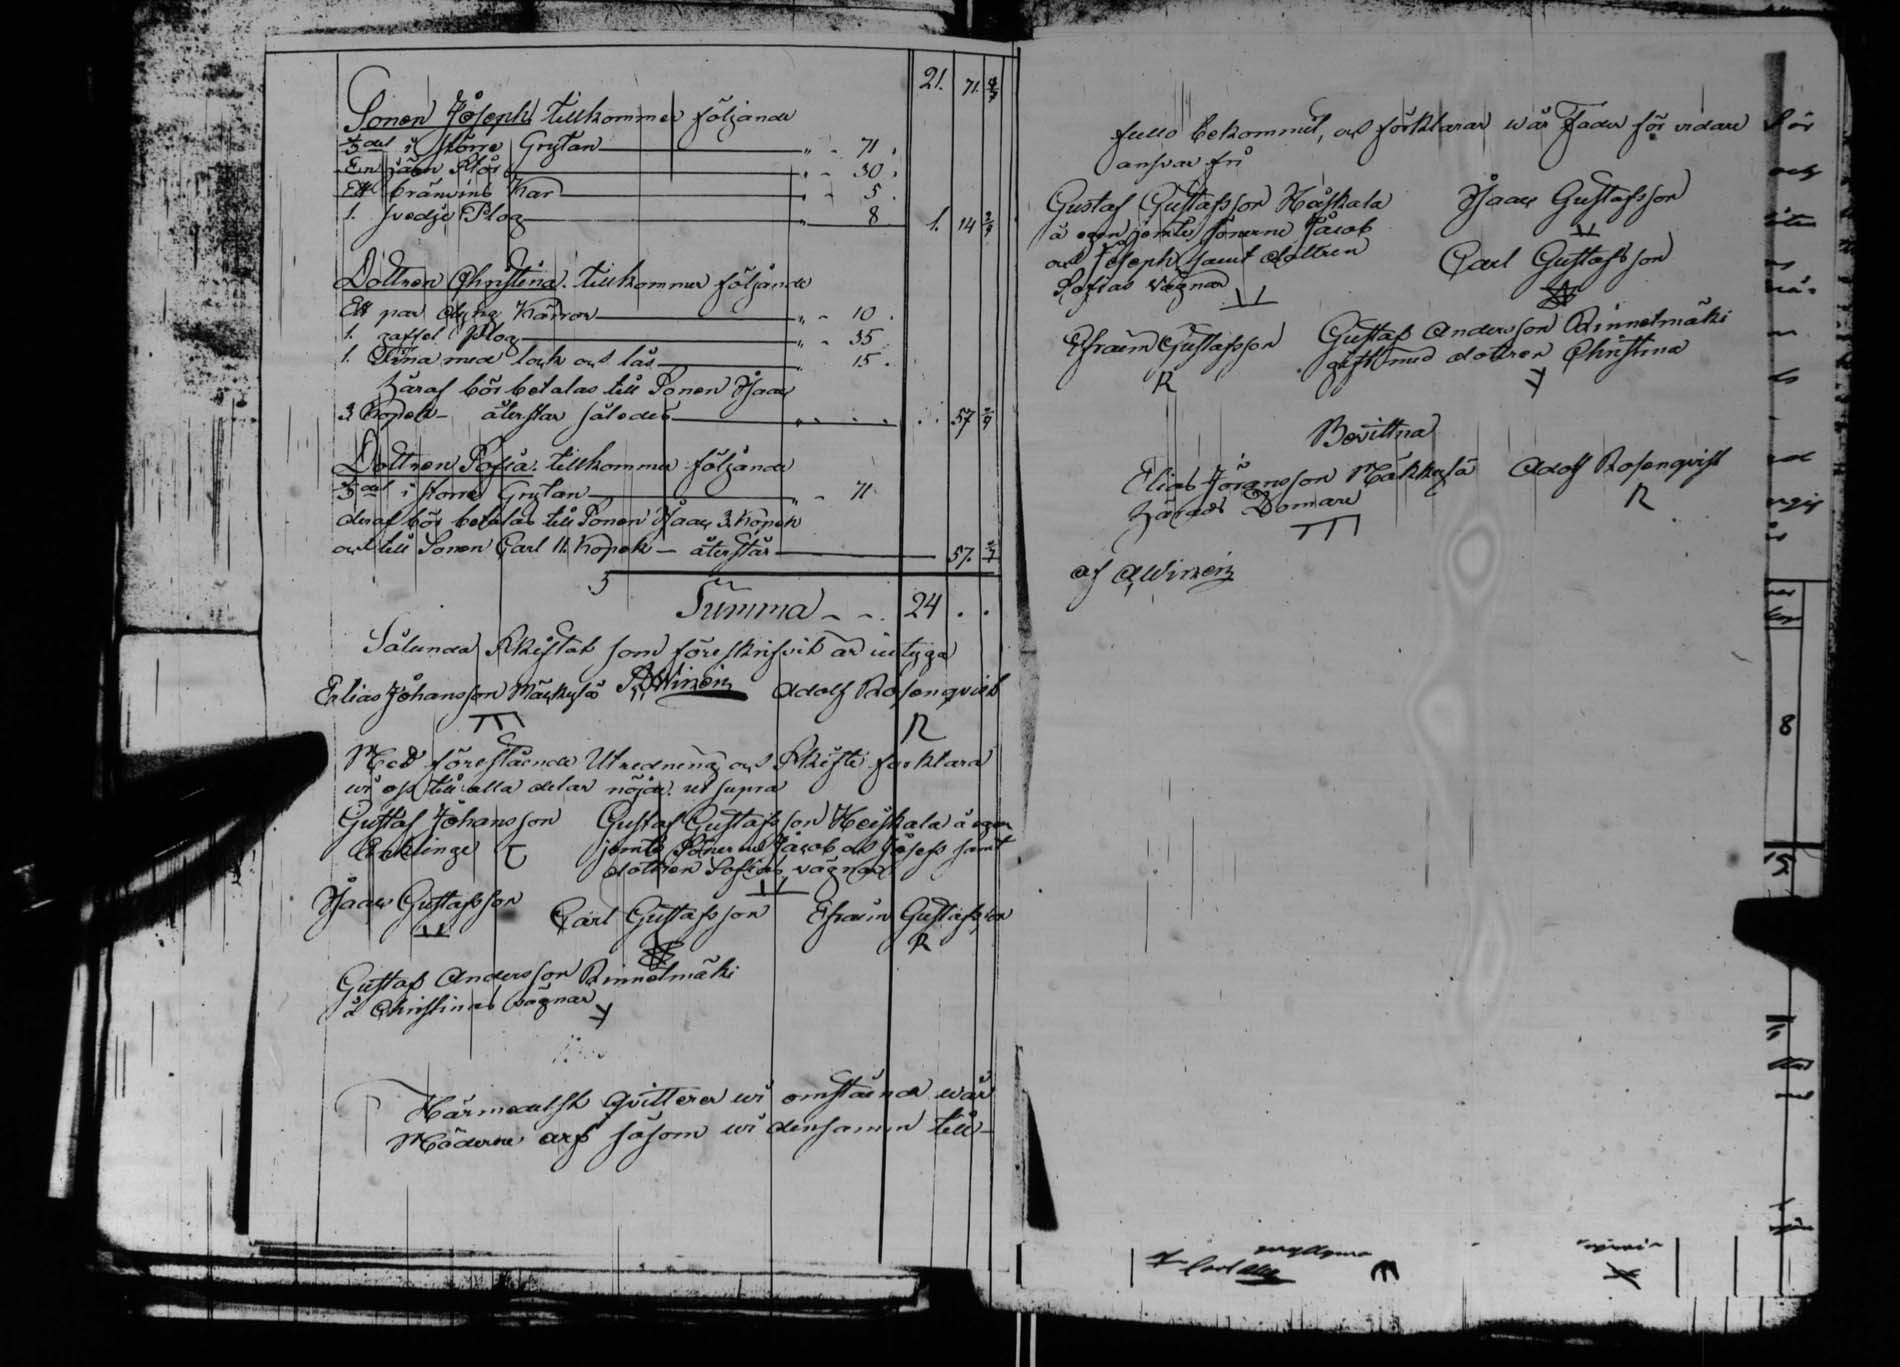 21. 71. 2/7
Sonen Joseph tillkommer följande
1/5 del i större Grytan 71.
En järn Stör 30.
Ett bränvins Kar 5.
1. svedje Plog 8 1. 14 2/7
Dottren Christina tillkommer följande
Ett par Kärror 10.
1. gaffel Plog 35.
1. med lock och lås 15.
häraf bör betalas till Sonen Isaac
3. Kopek återstår således 57 2/7
Dottren Sofia tillkommer följande
1/5 del i större Grytan 71
deraf bör betalas till Sonen Isaac 3. Kopek
och till Sonen Carl 11. Kopek – återstår 57. 2/7
Summa 24.
Sålunda Skiftat som föreskrifvit är intyga
Elias Johansson Mäkkylä AWinein Adolf Rosenqvist
R
Med förestående Utredning och Skifte förklara
wi oss till alla delar nöjde. ut supra
Gustaf Johansson
Gustaf Gustafsson Heiskala å egen
jemte Sönerne Jacob och Josefs samt
dottren Sofias vägnar
Isaac Gustafsson Carl Gustafsson Efraim Gustafsson
R
Gustaf Andersson Rinnetmäki
å Christinas vägnar
Härmedelst qvitterer wi omstående wår
Möderne arf såsom wi densamma till
fullo bekommit, och förklarar wår Fader för vidare
ansvar fri
Gustaf Gustafsson Häiskala
å egen jemte sönerne Jacob
och Joseph samt dottren
Sofias vägnar
Isaac Gustafsson
Carl Gustafsson
Efraim Gustafsson
R
Gustaf Andersson Rinnetmäki
gift med dottren Christina
Bevittna
Elias Göransson Mäkkylä Adolf Rosenqvist
Härads Domare R
af AWinein
8
15